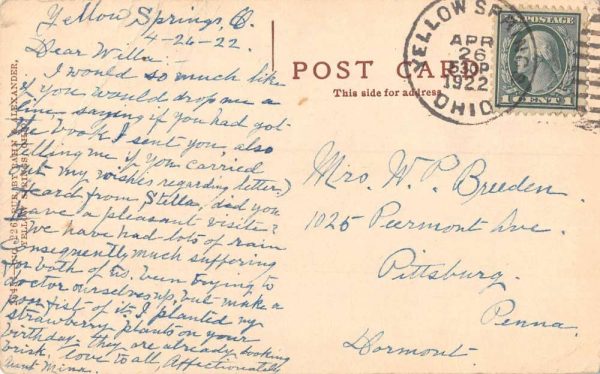 Yellow Springs, O.
4-26-22.
Dear Willa:
I would so much like
if you would drop me a
line saying if you had got
the book I sent you, also
telling me if you carried
out my wishes regarding letter,
Heard from Stella, did you
have a pleasant visit?
We have had lots of rain
Consequently much suffering
for both of us. been trying to
doctor ourselves up, but make a
poor fist of it. I planted my
strawberry plants on your
birthday. they are already looking
brisk. love to all, Affectionately
Aunt Mina.
POST CARD
This side for address
YELLOW SPRINGS
APR
26
1922
OHIO
POSTAGE
1 CENT 1
Mrs. W. P. Breeden.
1025 Peermont Ave.
Pittsburg.
Penna.
Dormont.
ALEXANDER,
YELLOW SPRINGS, OHIO